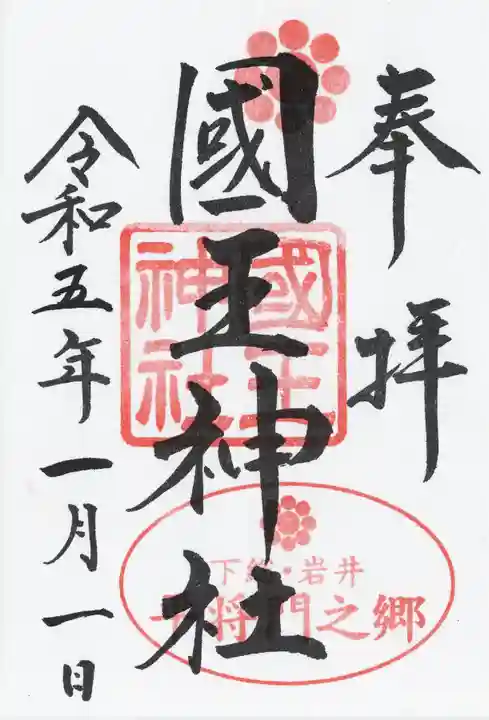 奉拝
國王神社
令和五年一月一日
國王神社
下総・岩井
平将門之郷